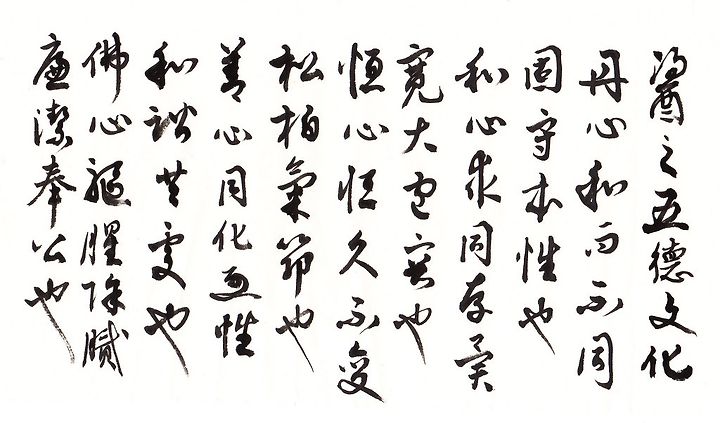 醬之五德文化
丹心和而不同
固守本性也
和心求同存異
寬大包容也
恒心恒久不變
松柏氣節也
善心同化惡性
和諧共處也
佛心驅腥除膩
廉潔奉公也